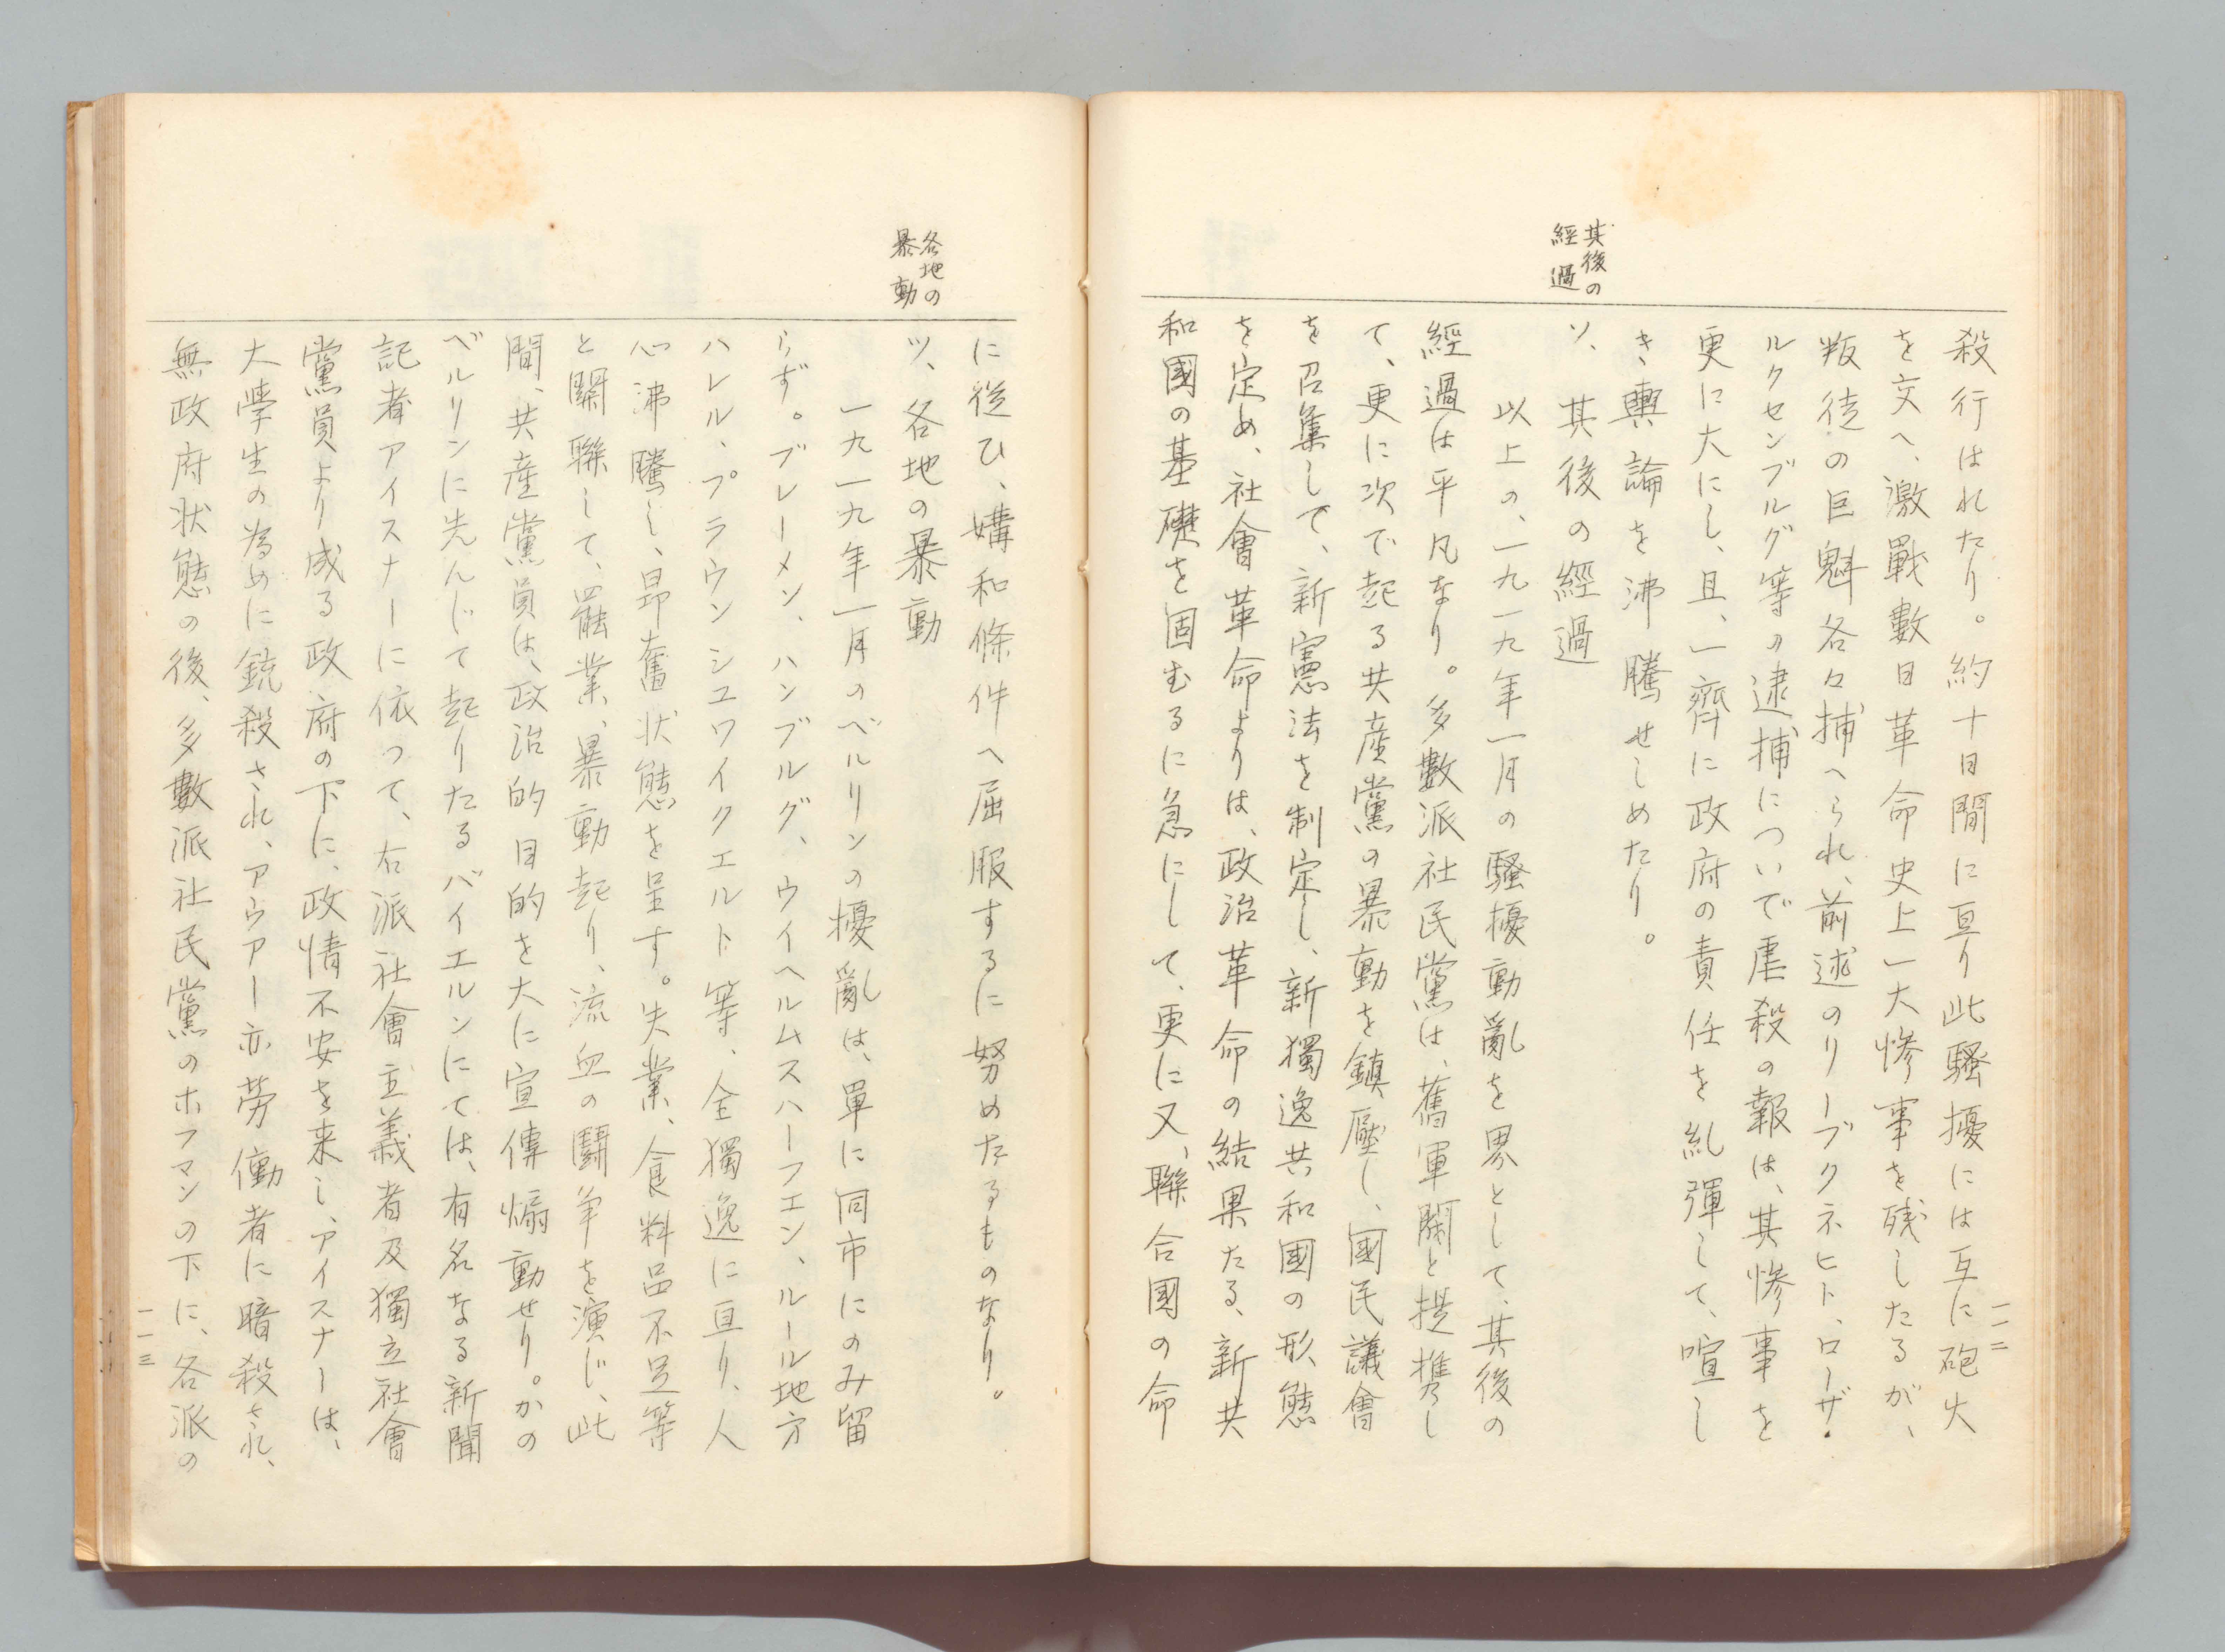 其後の
經過
殺行はれたり。約十日間に亘り此騷擾には互に砲火
を交へ、激戰數日革命史上一大慘事を残したるが、
叛徒の巨魁各々捕へられ、前述のリーブクネヒト、ローザ・
ルクセンブルグ等の逮捕についで虐殺の報は、其慘事を
更に大にし、且、一齊に政府の責任を糺彈して、喧し
き輿論を沸騰せしめたり。
ソ、其後の經過
以上の、一九一九年一月の騷擾動亂を界として、其後の
經過は平凡なり。多數派社民黨は、舊軍閥と提携し
て、更に次で起る共産黨の暴動を鎭壓し、國民議會
を召集して、新憲法を制定し、新獨逸共和國の形態
を定め、社會革命よりは、政治革命の結果たる、新共
和國の基礎を固むるに急にして、更に又、聯合國の命
一一二
各地の
暴動
に從ひ、媾和條件へ屈服するに努めたるものなり。
ツ、各地の暴動
一九一九年一月のベルリンの擾亂は、單に同市にのみ留
らず。ブレーメン、ハンブルグ、ウイヘルムスハーフエン、ルール地方
ハレル、プラウンシユワイクエルト等、全獨逸に亘り、人
心沸騰し、昻奮状態を呈す。失業、食料品不足等
と關聯して、罷業、暴動起り、流血の鬪争を演じ、此
間、共産黨員は、政治的目的を大に宣傳煽動せり。かの
ベルリンに先んじて起りたるバイエルンにては、有名なる新聞
記者アイスナーに依つて、右派社會主義者及獨立社會
黨員より成る政府の下に、政情不安を来し、アイスナーは、
大學生の為めに銃殺され、アウアー亦勞働者に暗殺され、
無政府状態の後、多數派社民黨のホフマンの下に、各派の
一一三